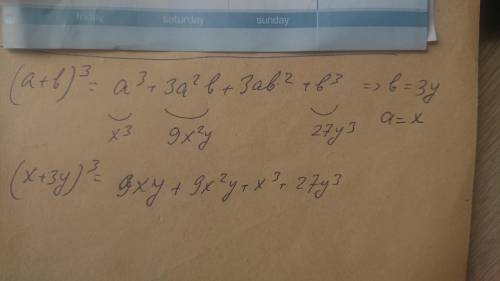 friday saturday sunday
(a+b)³= a³+3a²b+3ab²+b³ => b=3y
x³ 9x²y 27y³ a=x
(x+3y)³= 9xy+9x²y+x³+27y³